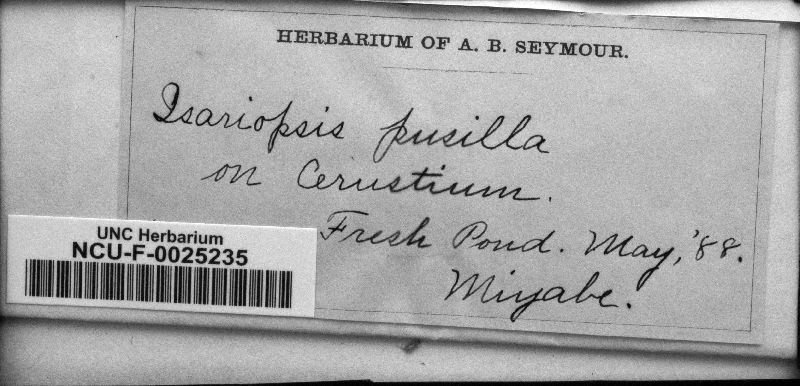 HERBARIUM OF A. B. SEYMOUR.
Isariopsis pusilla
on Cerastium.
Fresh Pond. May, '88.
Miyabe.
UNC Herbarium
NCU-F-0025235